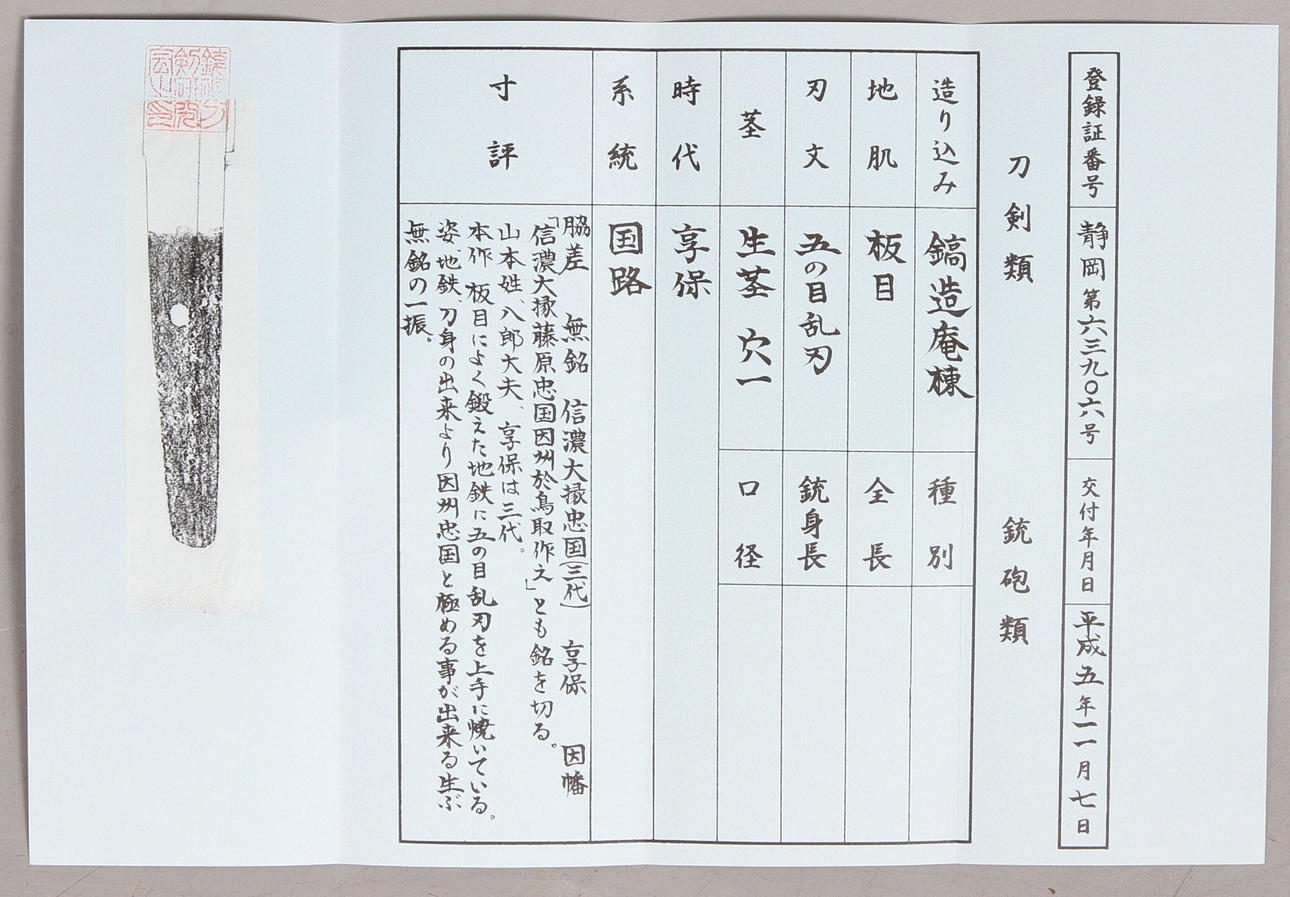 登録証番号 静岡第六三九〇六号 交付年月日 平成五年一一月七日
刀剣類 銃砲類
造り込み 鎬造庵棟 種別
地肌 板目 全長
刃文 五の目乱刃 銃身長
茎 生茎 穴一 口径
時代 享保
系統 国路
寸評
脇差 無銘 信濃大掾忠国(三代) 享保 因幡
「信濃大掾藤原忠国因州於鳥取作之」とも銘を切る。
山本姓、八郎大夫、享保は三代。
本作、板目によく鍛えた地鉄に五の目乱刃を上手に焼いている。
姿、地鉄、刀身の出来より因州忠国と極める事が出来る生ぶ
無銘の一振。